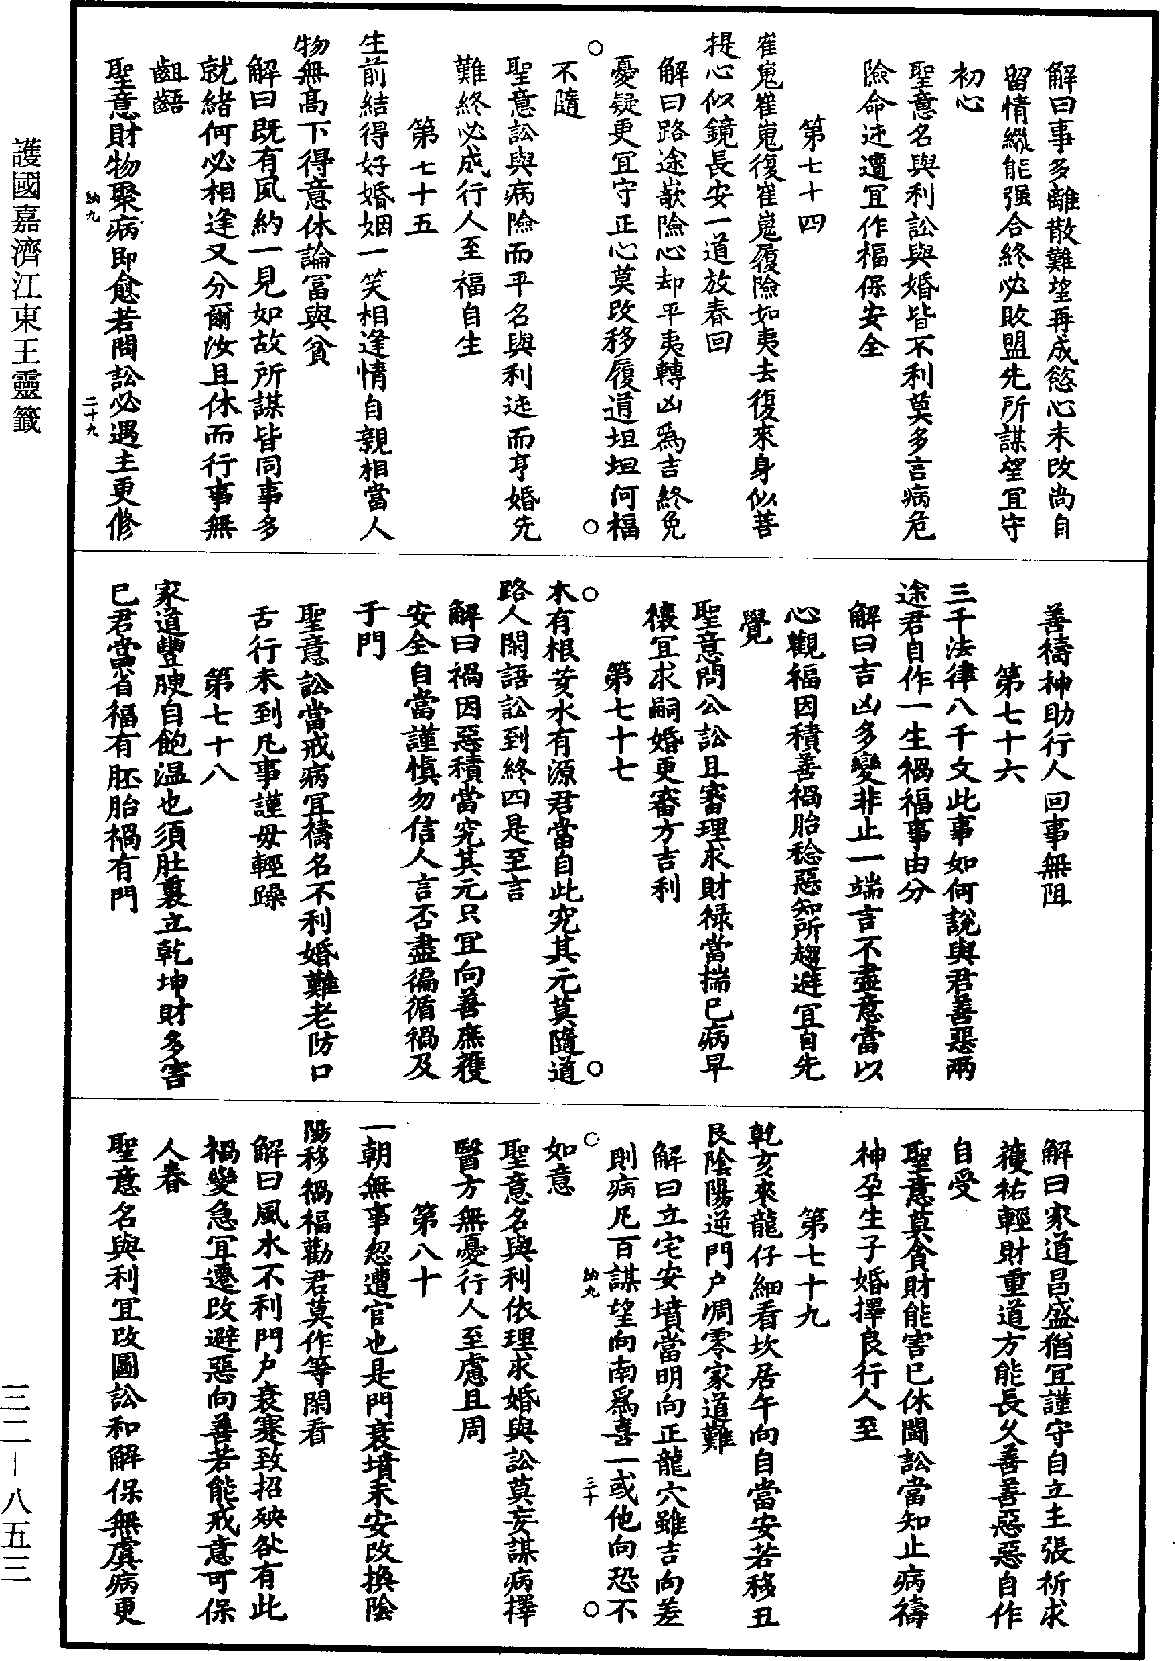 解曰事多離散難望再成慾心未改尚自
留情縱能强合終必敗盟先所謀望宜守
初心
聖意名與利訟與婚皆不利莫多言病危
險命迍邅宜作福保安全
第七十四
崔嵬崔嵬復崔嵬履險如夷去復來身似菩
提心似鏡長安一道放春回
解曰路途嶔險心却平夷轉凶爲吉終免
憂疑更宜守正心莫改移履道坦坦何福
不隨
聖意訟與病險而平名與利迍而亨婚先
難終必成行人至福自生
第七十五
生前結得好婚姻一笑相逢情自親相當人
物無高下得意休論富與貧
解曰既有夙約一見如故所謀皆同事多
就緒何必相逢又分爾汝且休而行事無
齟齬
聖意財物聚病即愈若問訟必遇主更修
善禱神助行人回事無阻
第七十六
三千法律八千文此事如何說與君善惡兩
途君自作一生禍福事由分
解曰吉凶多變非止一端吉不盡意當以
心觀福因積善禍胎稔惡知所趨避宜自先
覺
聖意問公訟且審理求財祿當揣已病早
禳宜求嗣婚更審方吉利
第七十七
木有根荄水有源君當自此究其元莫隨道
路人閑語訟到終凶是至言
解曰禍因惡積當究其元只宜向善庶獲
安全自當謹慎勿信人言否盡徧循禍及
于門
聖意訟當戒病宜禱名不利婚難老防口
舌行未到凡事謹毋輕躁
第七十八
家道豐腴自飽溫也須肚裏立乾坤財多害
已君當省福有胚胎禍有門
解曰家道昌盛猶宜謹守自立主張祈求
獲祐輕財重道方能長久善善惡惡自作
自受
聖意莫貪財能害已休鬪訟當知止病禱
神孕生子婚擇良行人至
第七十九
乾亥來龍仔細看坎居午向自當安若移丑
艮陰陽逆門戶凋零家道難
解曰立宅安墳當明向正龍穴雖吉向差
則病凡百謀望向南爲喜一或他向恐不
如意
聖意名與利依理求婚與訟莫妄謀病擇
醫方無憂行人至慮且周
第八十
一朝無事忽遭官也是門衰墳未安改換陰
陽移禍福勸君莫作等閑看
解曰風水不利門戶衰蹇致招殃咎有此
禍變急宜遷改避惡向善若能戒意可保
人眷
聖意名與利宜改圖訟和解保無虞病更
納九
二十九
納九
三十
護國嘉濟江東王靈籤
三二－八五三